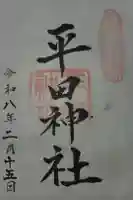 平田神社
令和八年二月十五日